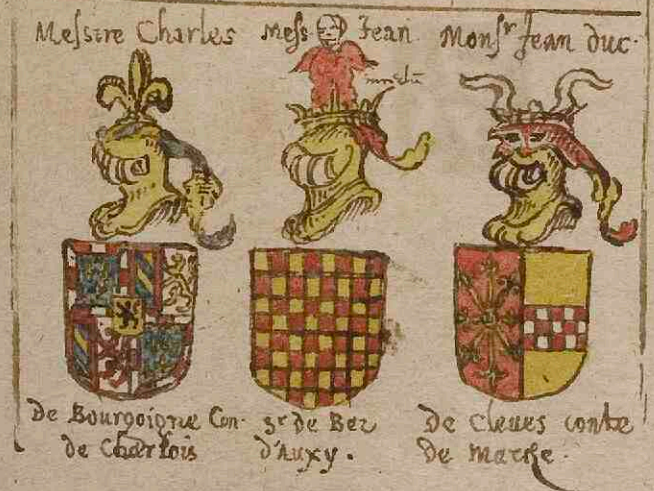 Messire Charles
de Bourgoigne Con
de Charlois
Mess Jean
Sr de Ber
d'Auxy.
Monsr Jean duc
de Cleues conte
de Marche.